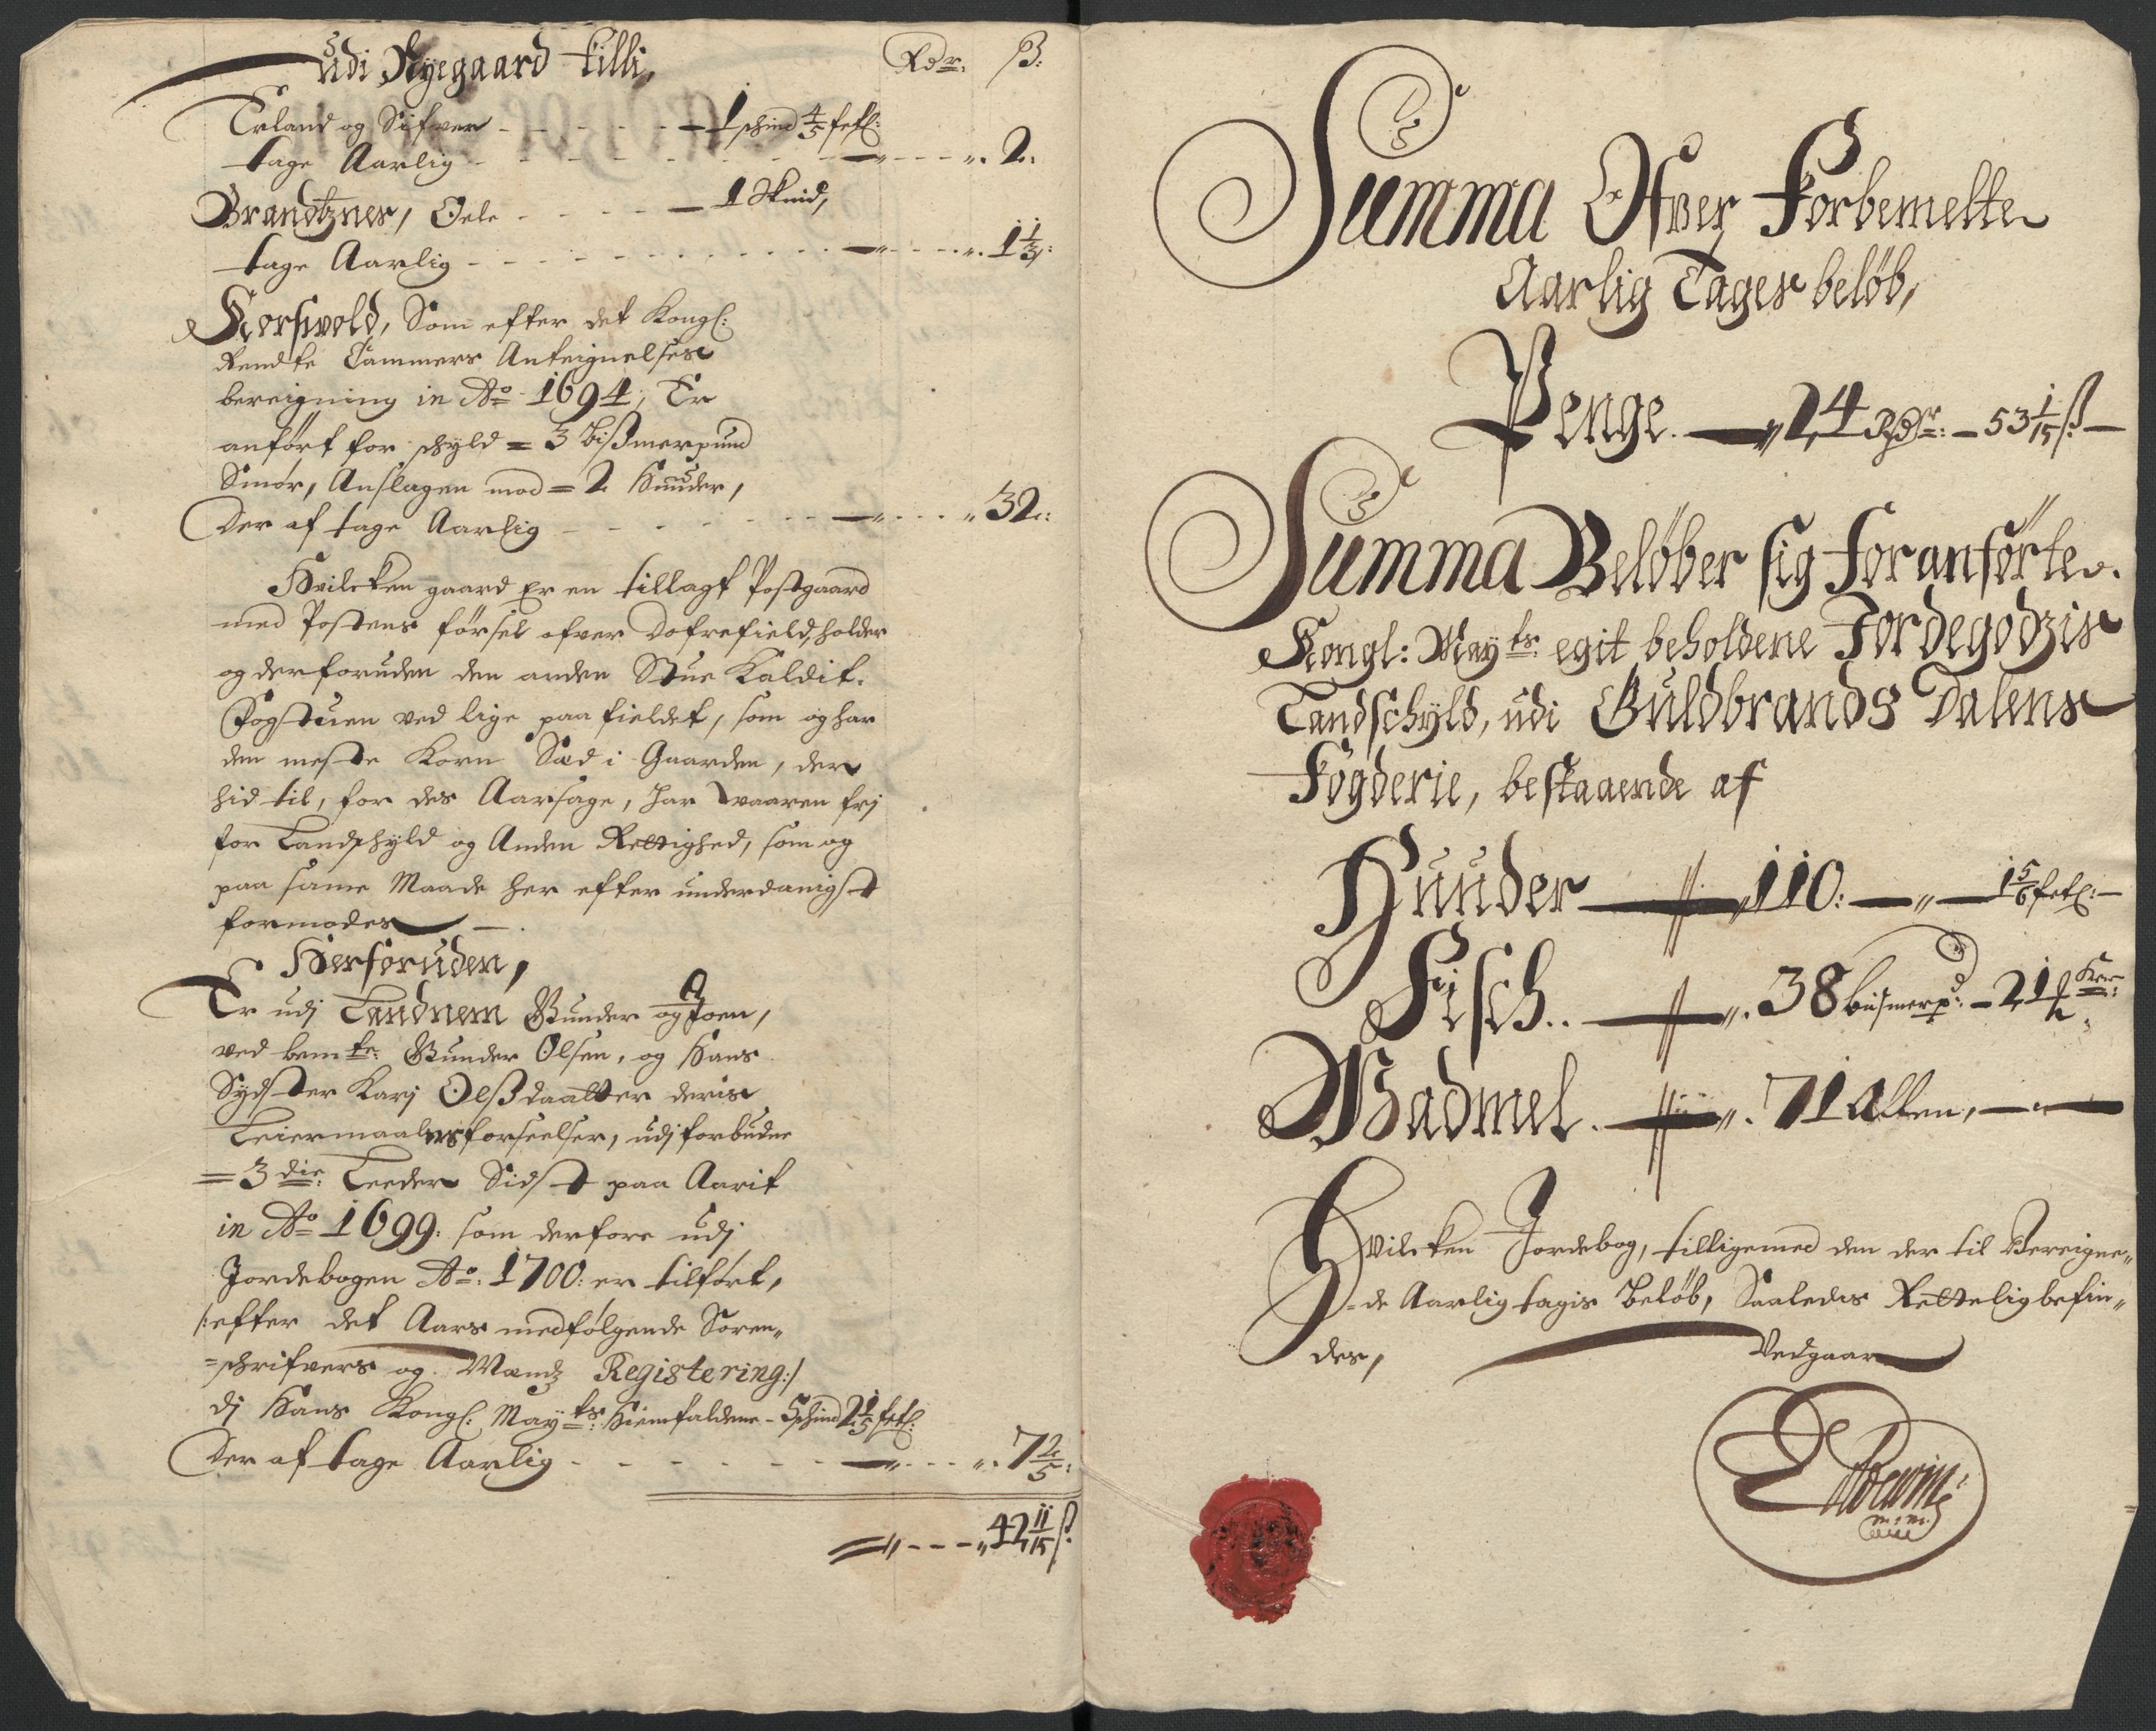 Udi Ryegaard tilli,
Rdr. ß:
Erland og Sifver - - - - - 1 schind 4/5 fetl:
tage Aarlig - - - - - - - - 2:
Brandtznes, Oele - - - - 1 Skind,
tage Aarlig - - - - - - - - - 1 1/3:
Korsvold, Som efter det Kongl:
Rendte Cammers Anteignelses
bereigning in Ao 1694, Er
anført for schyld = 3 bissmerpund
Smør, Anslagen mod = 2 Huuder,
Der af tage Aarlig - - - - - - 32:
Hvilcken gaard Er en tillagt Postgaard
med Postens førsel ofver Dofrefield, holder
og derforuden den anden Stue Kaldit
Fogstuen ved lige paa fieldet, som og har
den meste Korn Sæd i Gaarden, der
hid til, for des Aarsage, har vaaren frj
for Landschyld og Anden Rettighed, som og
paa samme Maade her efter underdanigst
formodes
Herforuden,
Er udj Landnem Gunder og Joen,
ved bemte: Gunder Olsen, og Hans
Sydster Karj Olssdaatter deris
Leiermaals forseelser, udj forbudne
= 3die: Leeder Sidst paa Aarit
in Ao 1699: som derfore udj
Jordebogen Ao: 1700: er tilført,
/:efter det Aars medfølgende Soren„
=schrifvers og Mændz Registering:/
dj Hans Kongl: Mayts: Hiemfaldene - 5 schind 2 1/5 fetl:
Der af tage Aarlig - - - - - - 7 2/5:
42 11/15 ß
Summa Ofver Forbemelte
Aarlig Tages beløb,
Penge. 24 Rdr: - 53 1/15 ß
Summa Beløber sig Foranførte
Kongl: Mayts: egit beholdene Jordegodzis
Landschyld, udi Guldbrands Dalens
Fogderie, bestaaende af
Huuder 110: 1 5/6 fetl:
Fisch.. 38 bismerpd: - 21 1/2 Ker:
Wadmel. 71 Allen,
Hvilcken Jordebog, tilligemed den der til Bereigne„
=de Aarlig tagis Beløb, Saaledes Rettelig befin„
des, Vedgaar